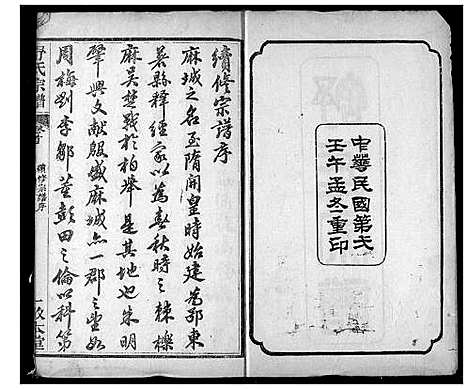 中華民國第一
壬午孟冬重印
續修宗譜序
麻城之名至隋開皇時始建為鄂東
名縣釋經家以為春秋時之柏櫟
麻吳楚戰於柏舉是其地也朱明
肇興文獻殷盛麻城亦一郡之望如
周梅劉李鄒董彭田之倫以科第
氏宗譜
續修宗譜序
一